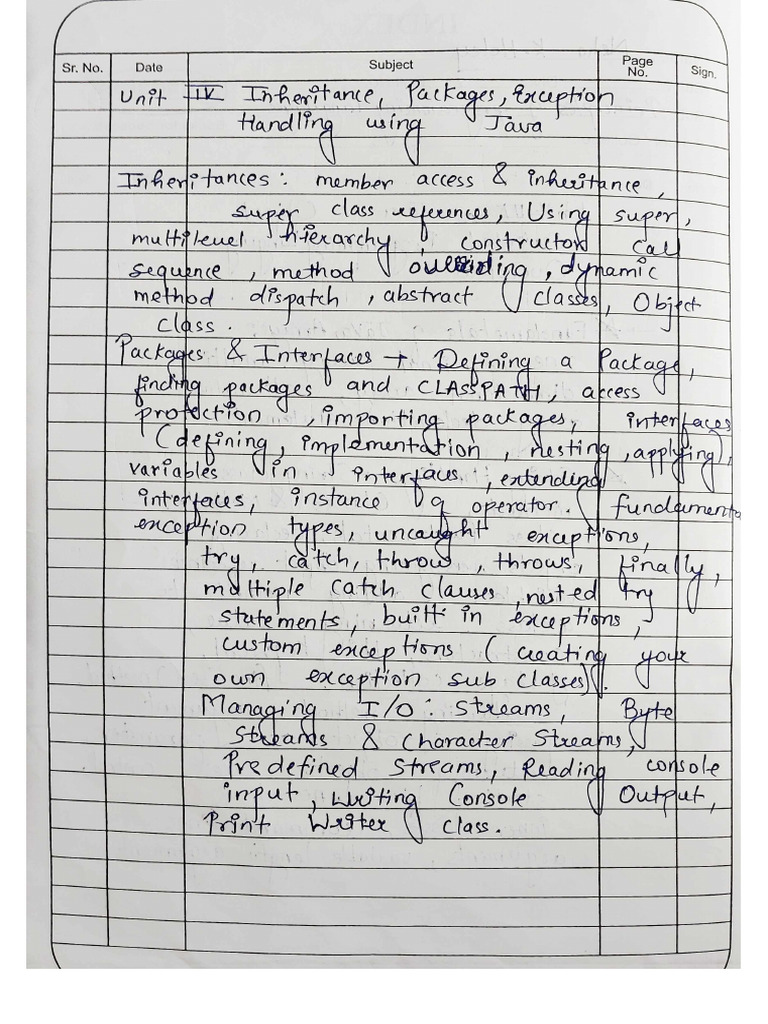 Sr. No. Date Subject Page No. Sign.
Unit IV Inheritance, Packages, Exception
Handling using Java
Inheritances: member access & inheritance,
super class references, Using super,
multilevel hierarchy, constructor call
sequence, method overriding, dynamic
method dispatch, abstract classes, Object
class.
Packages & Interfaces → Defining a Package,
finding packages and CLASSPATH, access
protection, importing packages, interfaces
(defining, implementation, nesting, applying),
variables in interfaces, extending
interfaces, instance of operator. fundamental
exception types, uncaught exceptions,
try, catch, throw, throws, finally,
multiple catch clauses, nested try
statements, built in exceptions,
custom exceptions (creating your
own exception sub classes).
Managing I/O: Streams, Byte
Streams & Character Streams,
Predefined Streams, Reading console
input, Writing Console Output,
Print Writer class.